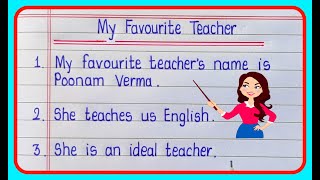 My Favourite Teacher
1. My favourite teacher's name is
Poonam Verma.
2. She teaches us English.
3. She is an ideal teacher.